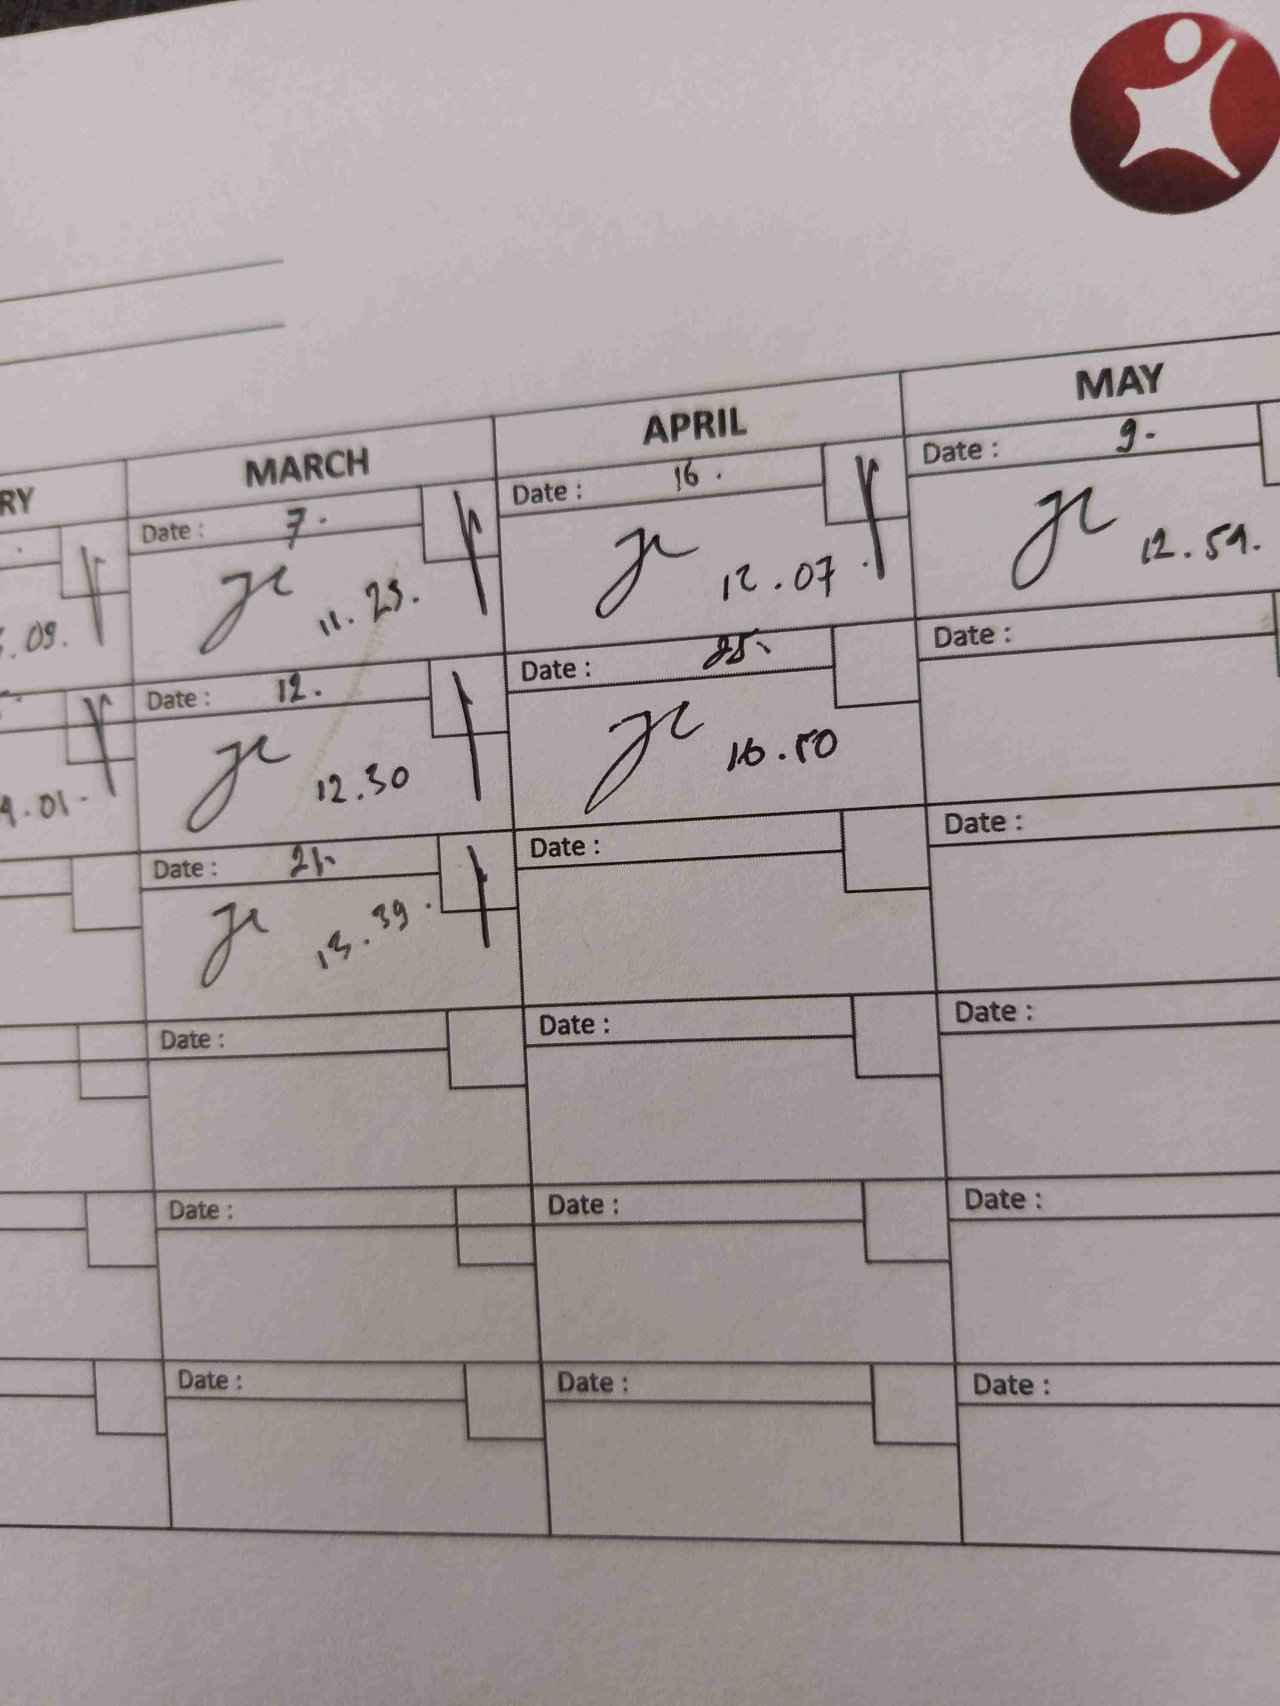 RY MARCH APRIL MAY
Date : 7. Date : 16. Date : 9.
.09. 11. 23. 12.07. 12.59.
Date : 12. Date : 25. Date :
.01. 12.30 16.50
Date : 21. Date : Date :
13.39.
Date : Date : Date :
Date : Date : Date :
Date : Date : Date :